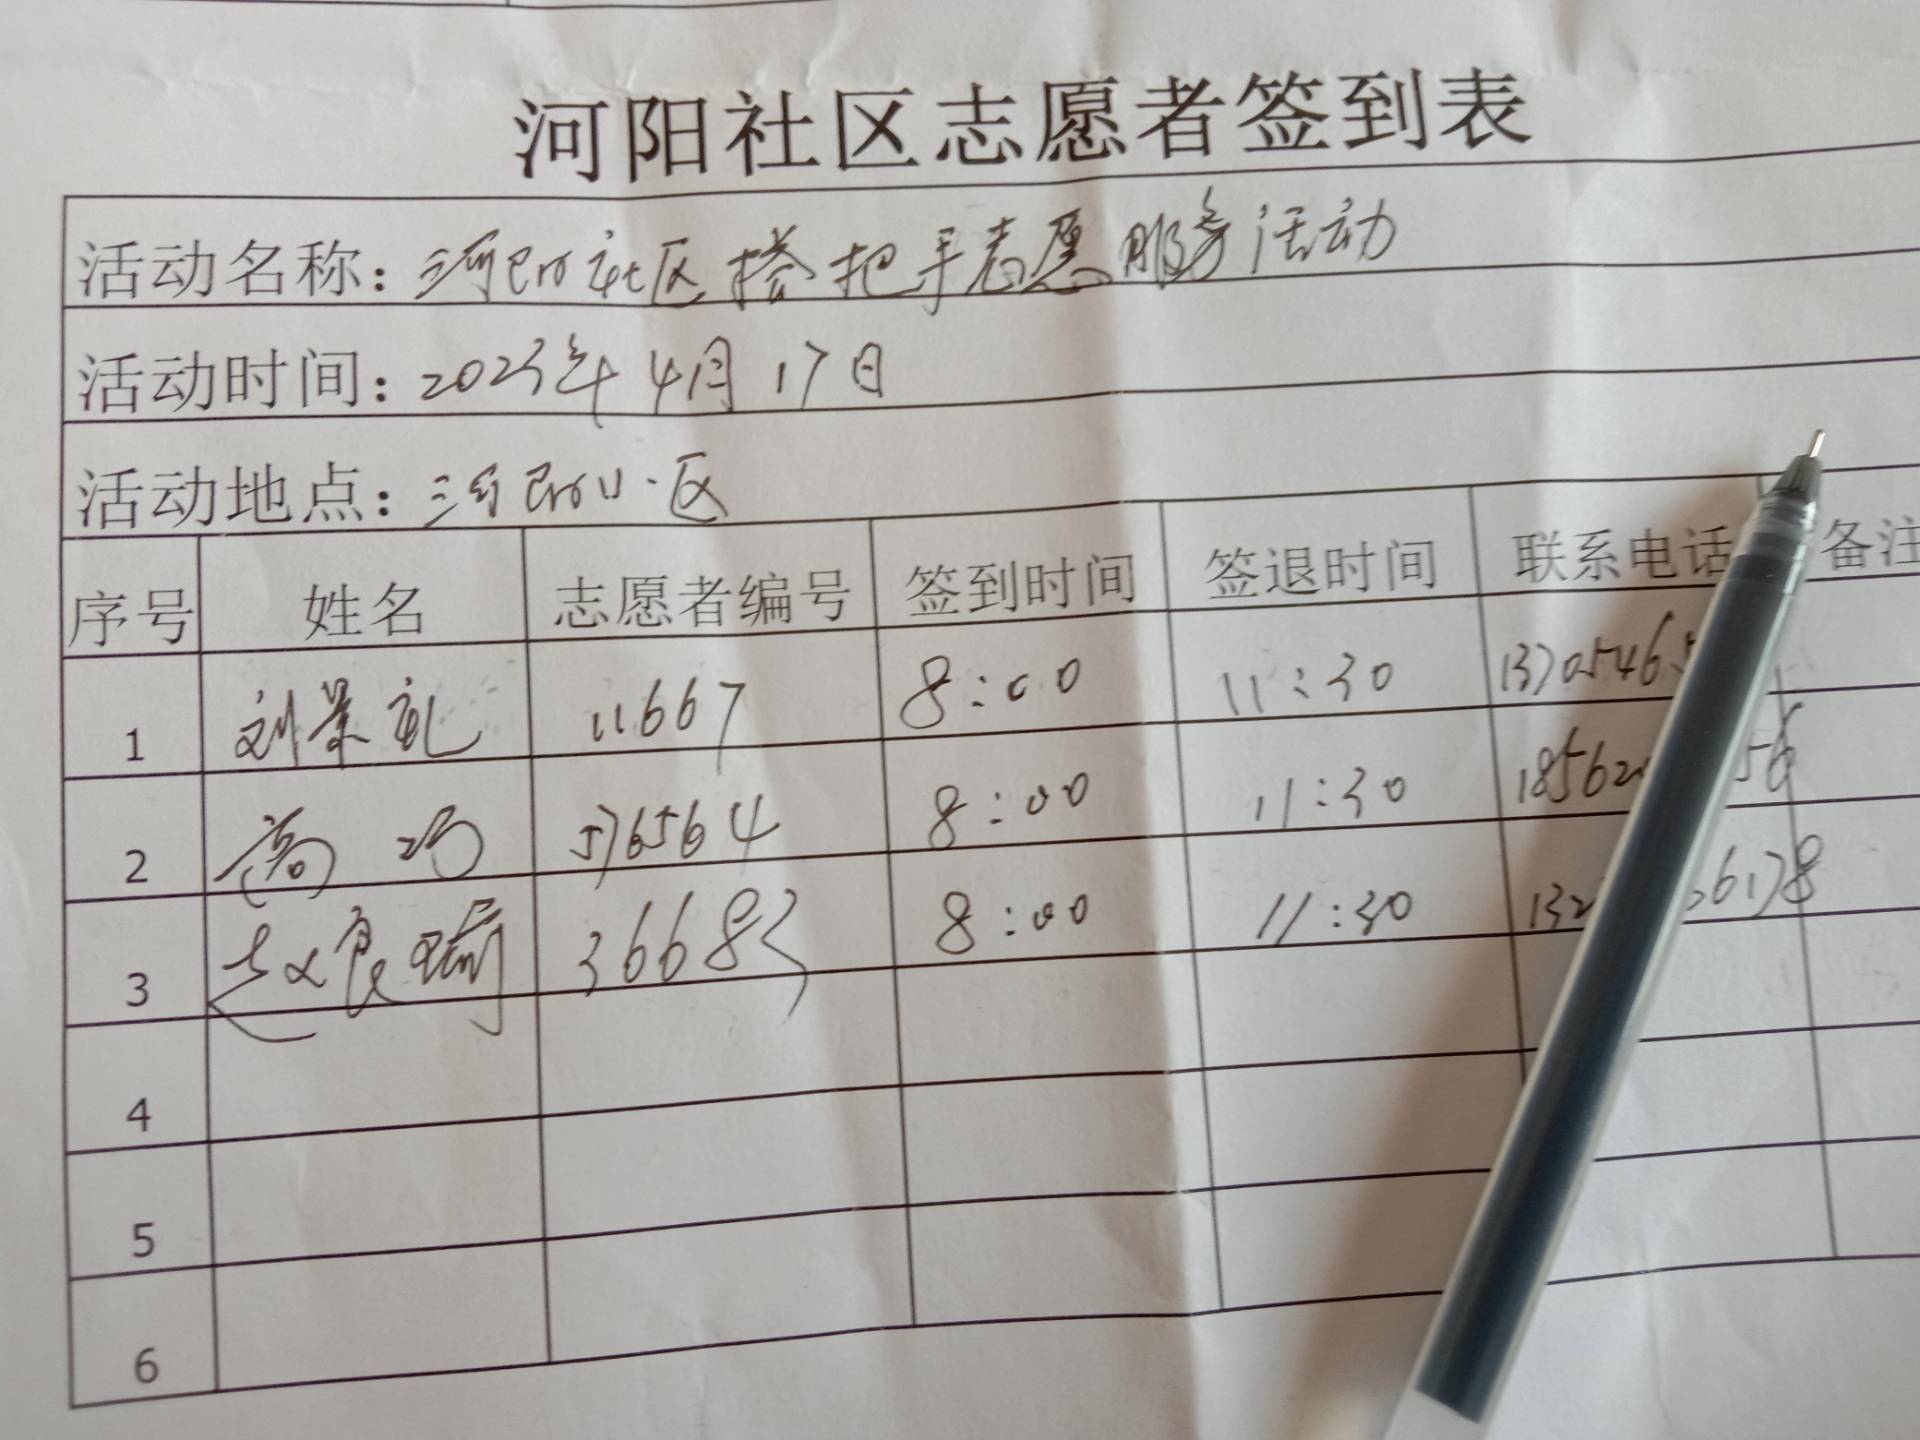 河阳社区志愿者签到表
活动名称：河阳社区搭把手志愿服务活动
活动时间：2023年4月17日
活动地点：河阳小区
序号 姓名 志愿者编号 签到时间 签退时间 联系电话 备注
1 刘景礼 11667 8:00 11:30 1370546
2 高巧 576564 8:00 11:30 18562 56
3 赵良瑜 36683 8:00 11:30 132 6178
4
5
6